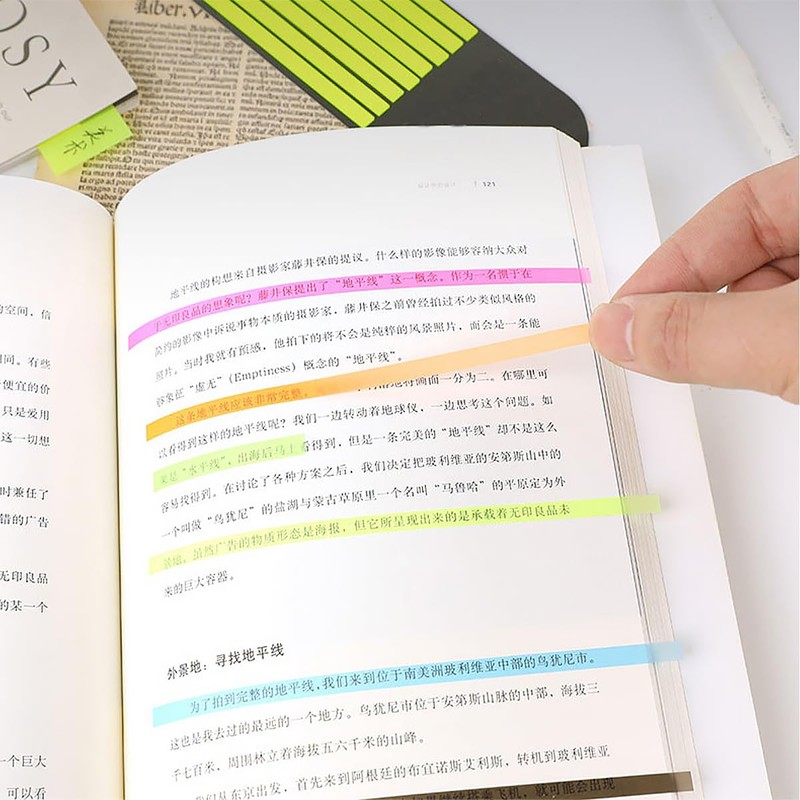 OSY
Liber.V
美术
121
的空间，信
相同。有些
便宜的价
只是爱用
这一切想
时兼任了
错的广告
无印良品
的某一个
一个巨大
可以看
地平线的构想来自摄影家藤井保的提议。什么样的影像能够容纳大众对
于无印良品的想象呢？藤井保提出了“地平线”这一概念。作为一名擅于在
简约的影像中诉说事物本质的摄影家，藤井保之前曾经拍过不少类似风格的
照片。当时我就有预感，他拍下的将不会是纯粹的风景照片，而会是一条能
够象征“虚无”(Emptiness) 概念的“地平线”。
这条地平线应该非常完整。 画面一分为二。在哪里可
以看得到这样的地平线呢？我们一边转动着地球仪，一边思考这个问题。如
果是“水平线”，出海后马上看得到，但是一条完美的“地平线”却不是这么
容易找得到。在讨论了各种方案之后，我们决定把玻利维亚的安第斯山中的
一个叫做“乌犹尼”的盐湖与蒙古草原里一个名叫“马鲁哈”的平原定为外
景地。虽然广告的物质形态是海报，但它所呈现出来的是承载着无印良品未
来的巨大容器。
外景地：寻找地平线
为了拍到完整的地平线，我们来到位于南美洲玻利维亚中部的乌犹尼市。
这也是我去过的最远的一个地方。乌犹尼市位于安第斯山脉的中部，海拔三
千七百米，周围林立着海拔五六千米的山峰。
我们从东京出发，首先来到阿根廷的布宜诺斯艾利斯，转机到玻利维亚
飞机，就可能会出现